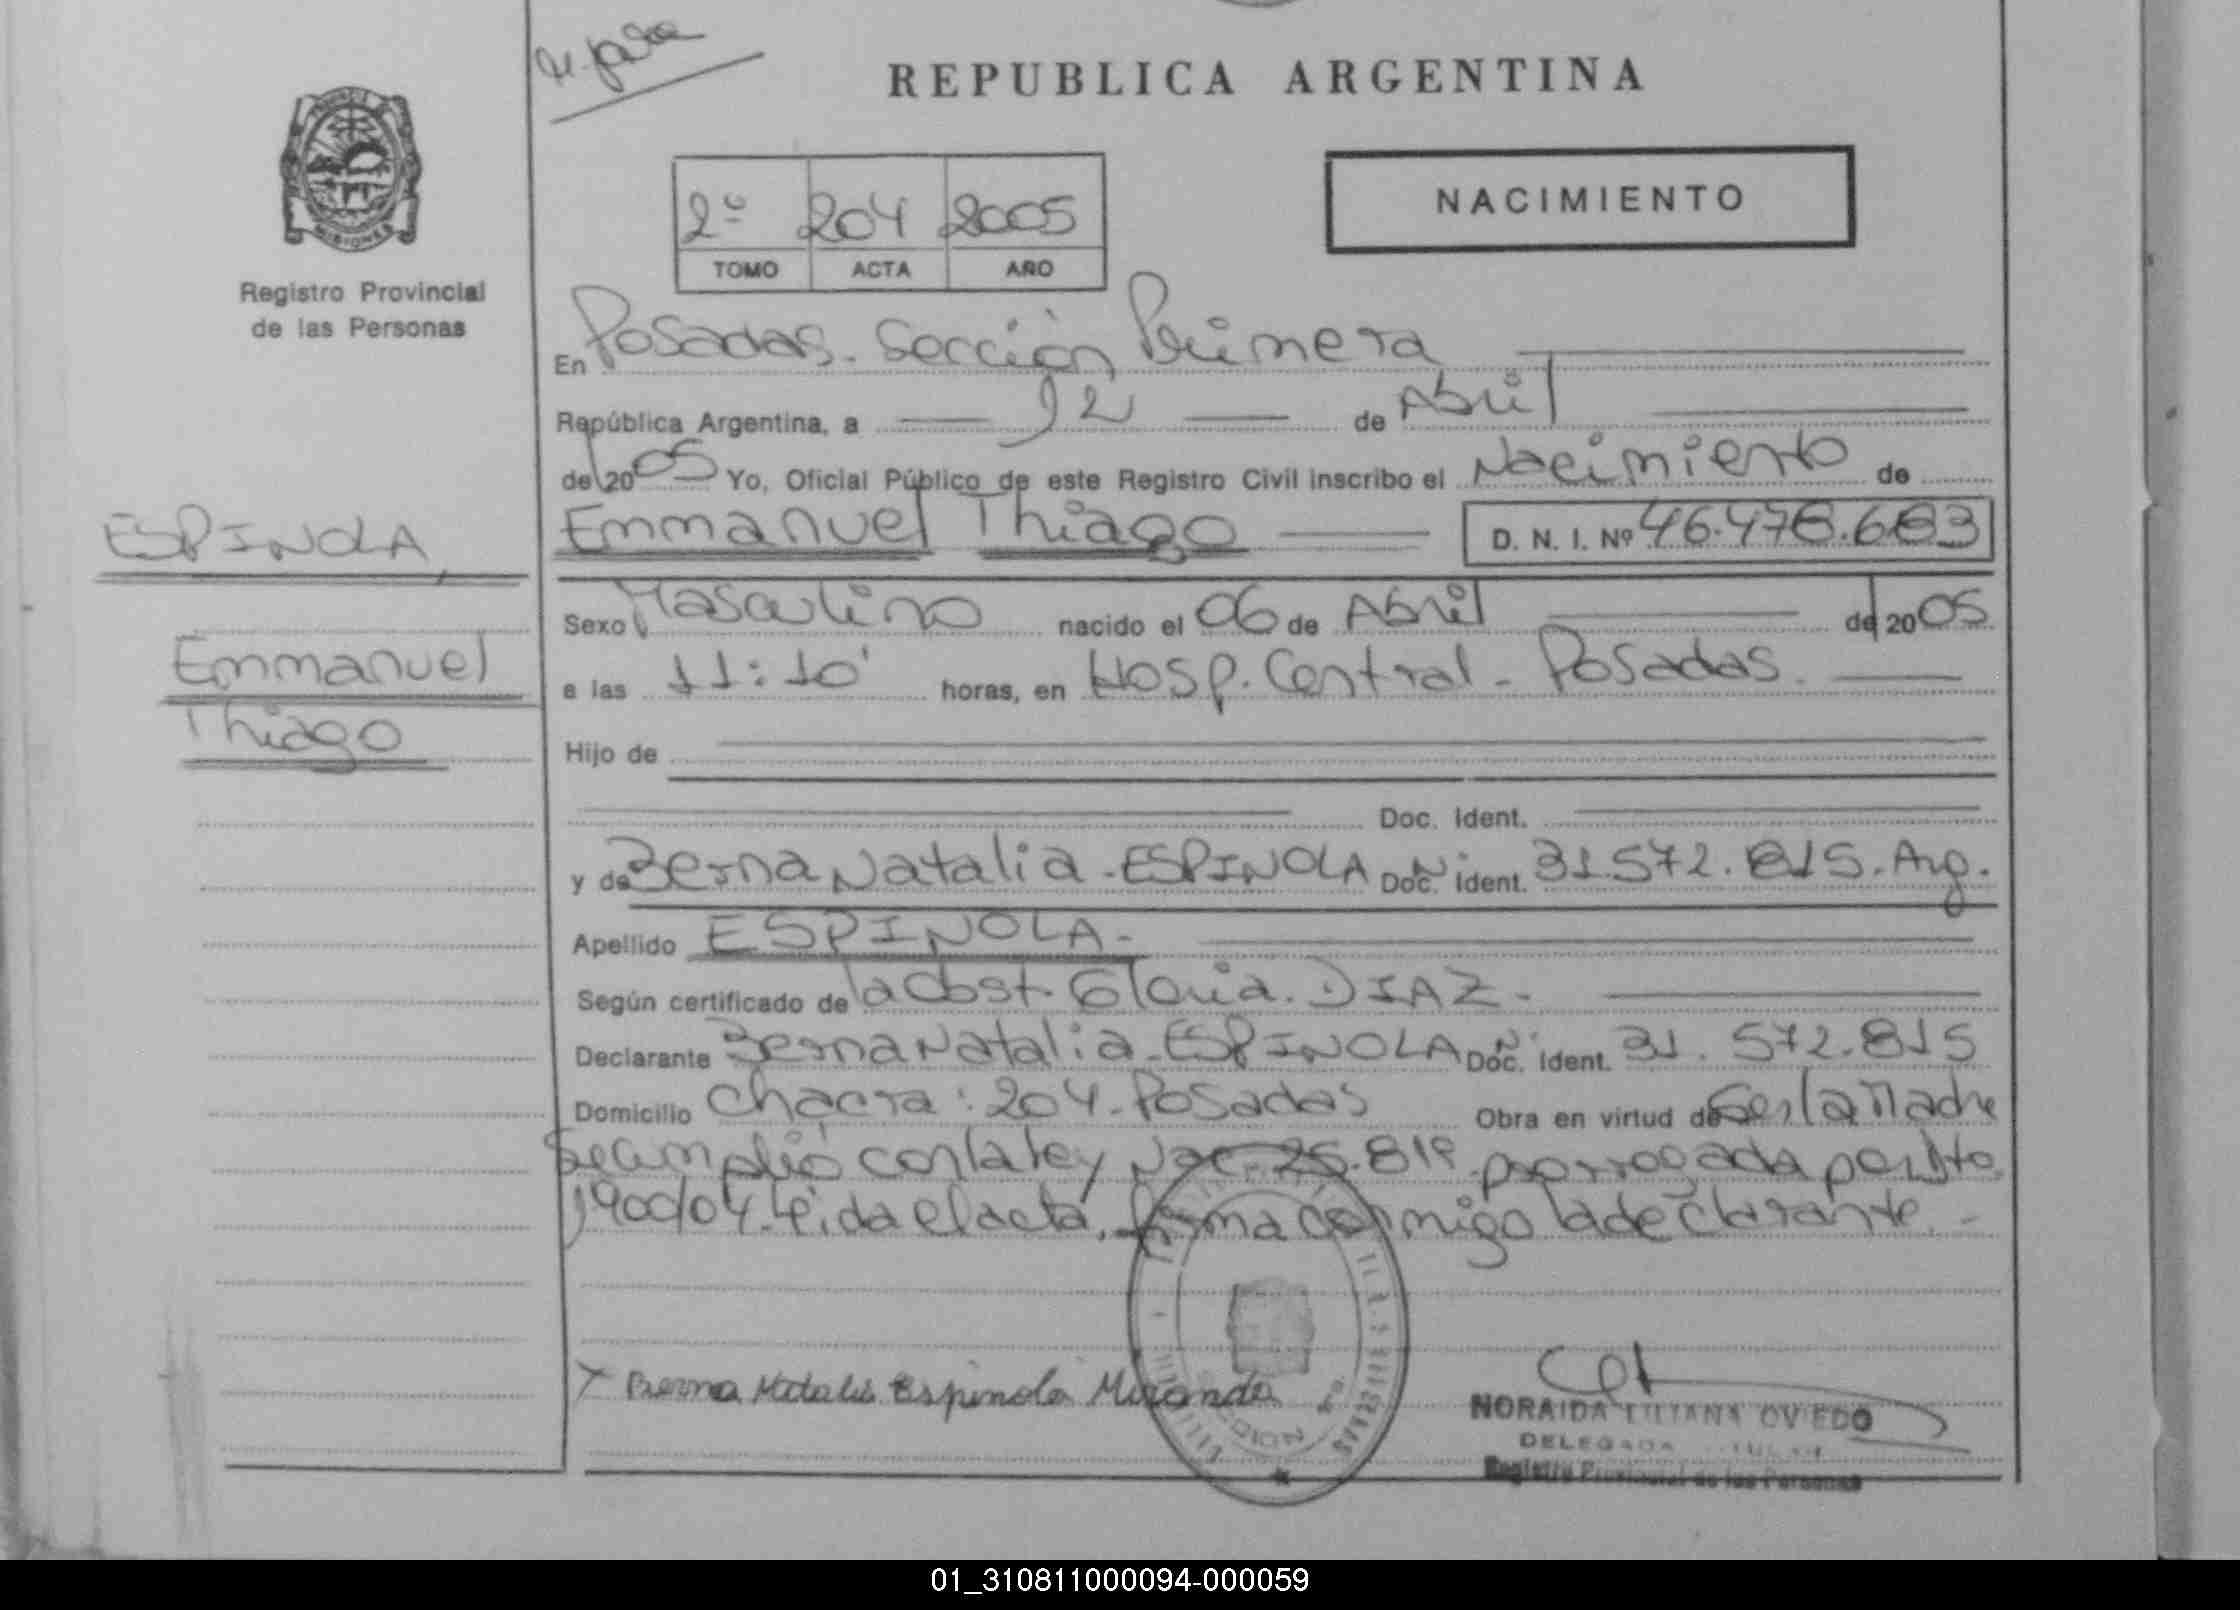 REPUBLICA ARGENTINA
MISIONES
Registro Provincial
de las Personas
2º 204 2005
TOMO ACTA AÑO
NACIMIENTO
En Posadas. Sección Primera
República Argentina, a 12 de Abril
de 2005 Yo, Oficial Público de este Registro Civil inscribo el Nacimiento de
Emmanuel Thiago D. N. I. Nº 46.478.683
ESPINOLA,
Emmanuel
Thiago
Sexo Masculino nacido el 06 de Abril de 2005
a las 11:10' horas, en Hosp. Central - Posadas.
Hijo de
Doc. Ident.
y de Berna Natalia - ESPINOLA Doc. Ident. 31.572.815. Arg.
Apellido ESPINOLA.-
Según certificado de la Obst. Gloria. DIAZ.-
Declarante Berna Natalia - ESPINOLA Doc. Ident. 31.572.815
Domicilio Chacra: 204. Posadas Obra en virtud de Ser la Madre
Se cumplió con la ley Nac. 25.819 prorrogada por Dto.
1900/04. Leida el acta, firma conmigo la declarante.-
x Berna Natalia Espinola Miranda
NORAIDA LILIANA OVIEDO
DELEGADA TITULAR
Registro Provincial de las Personas
01_310811000094-000059